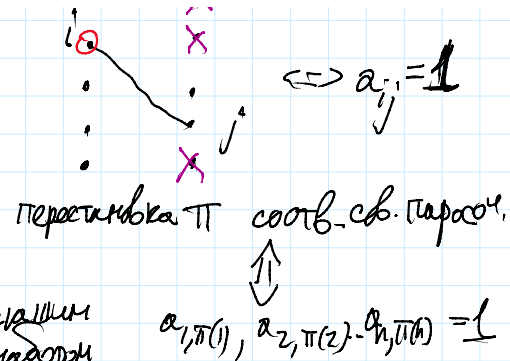 i
<=> a_{i,j} = 1
j
перестановка π соотв. св. паросоч.
a_{1,π(1)}, a_{2,π(2)} .. a_{n,π(n)} = 1